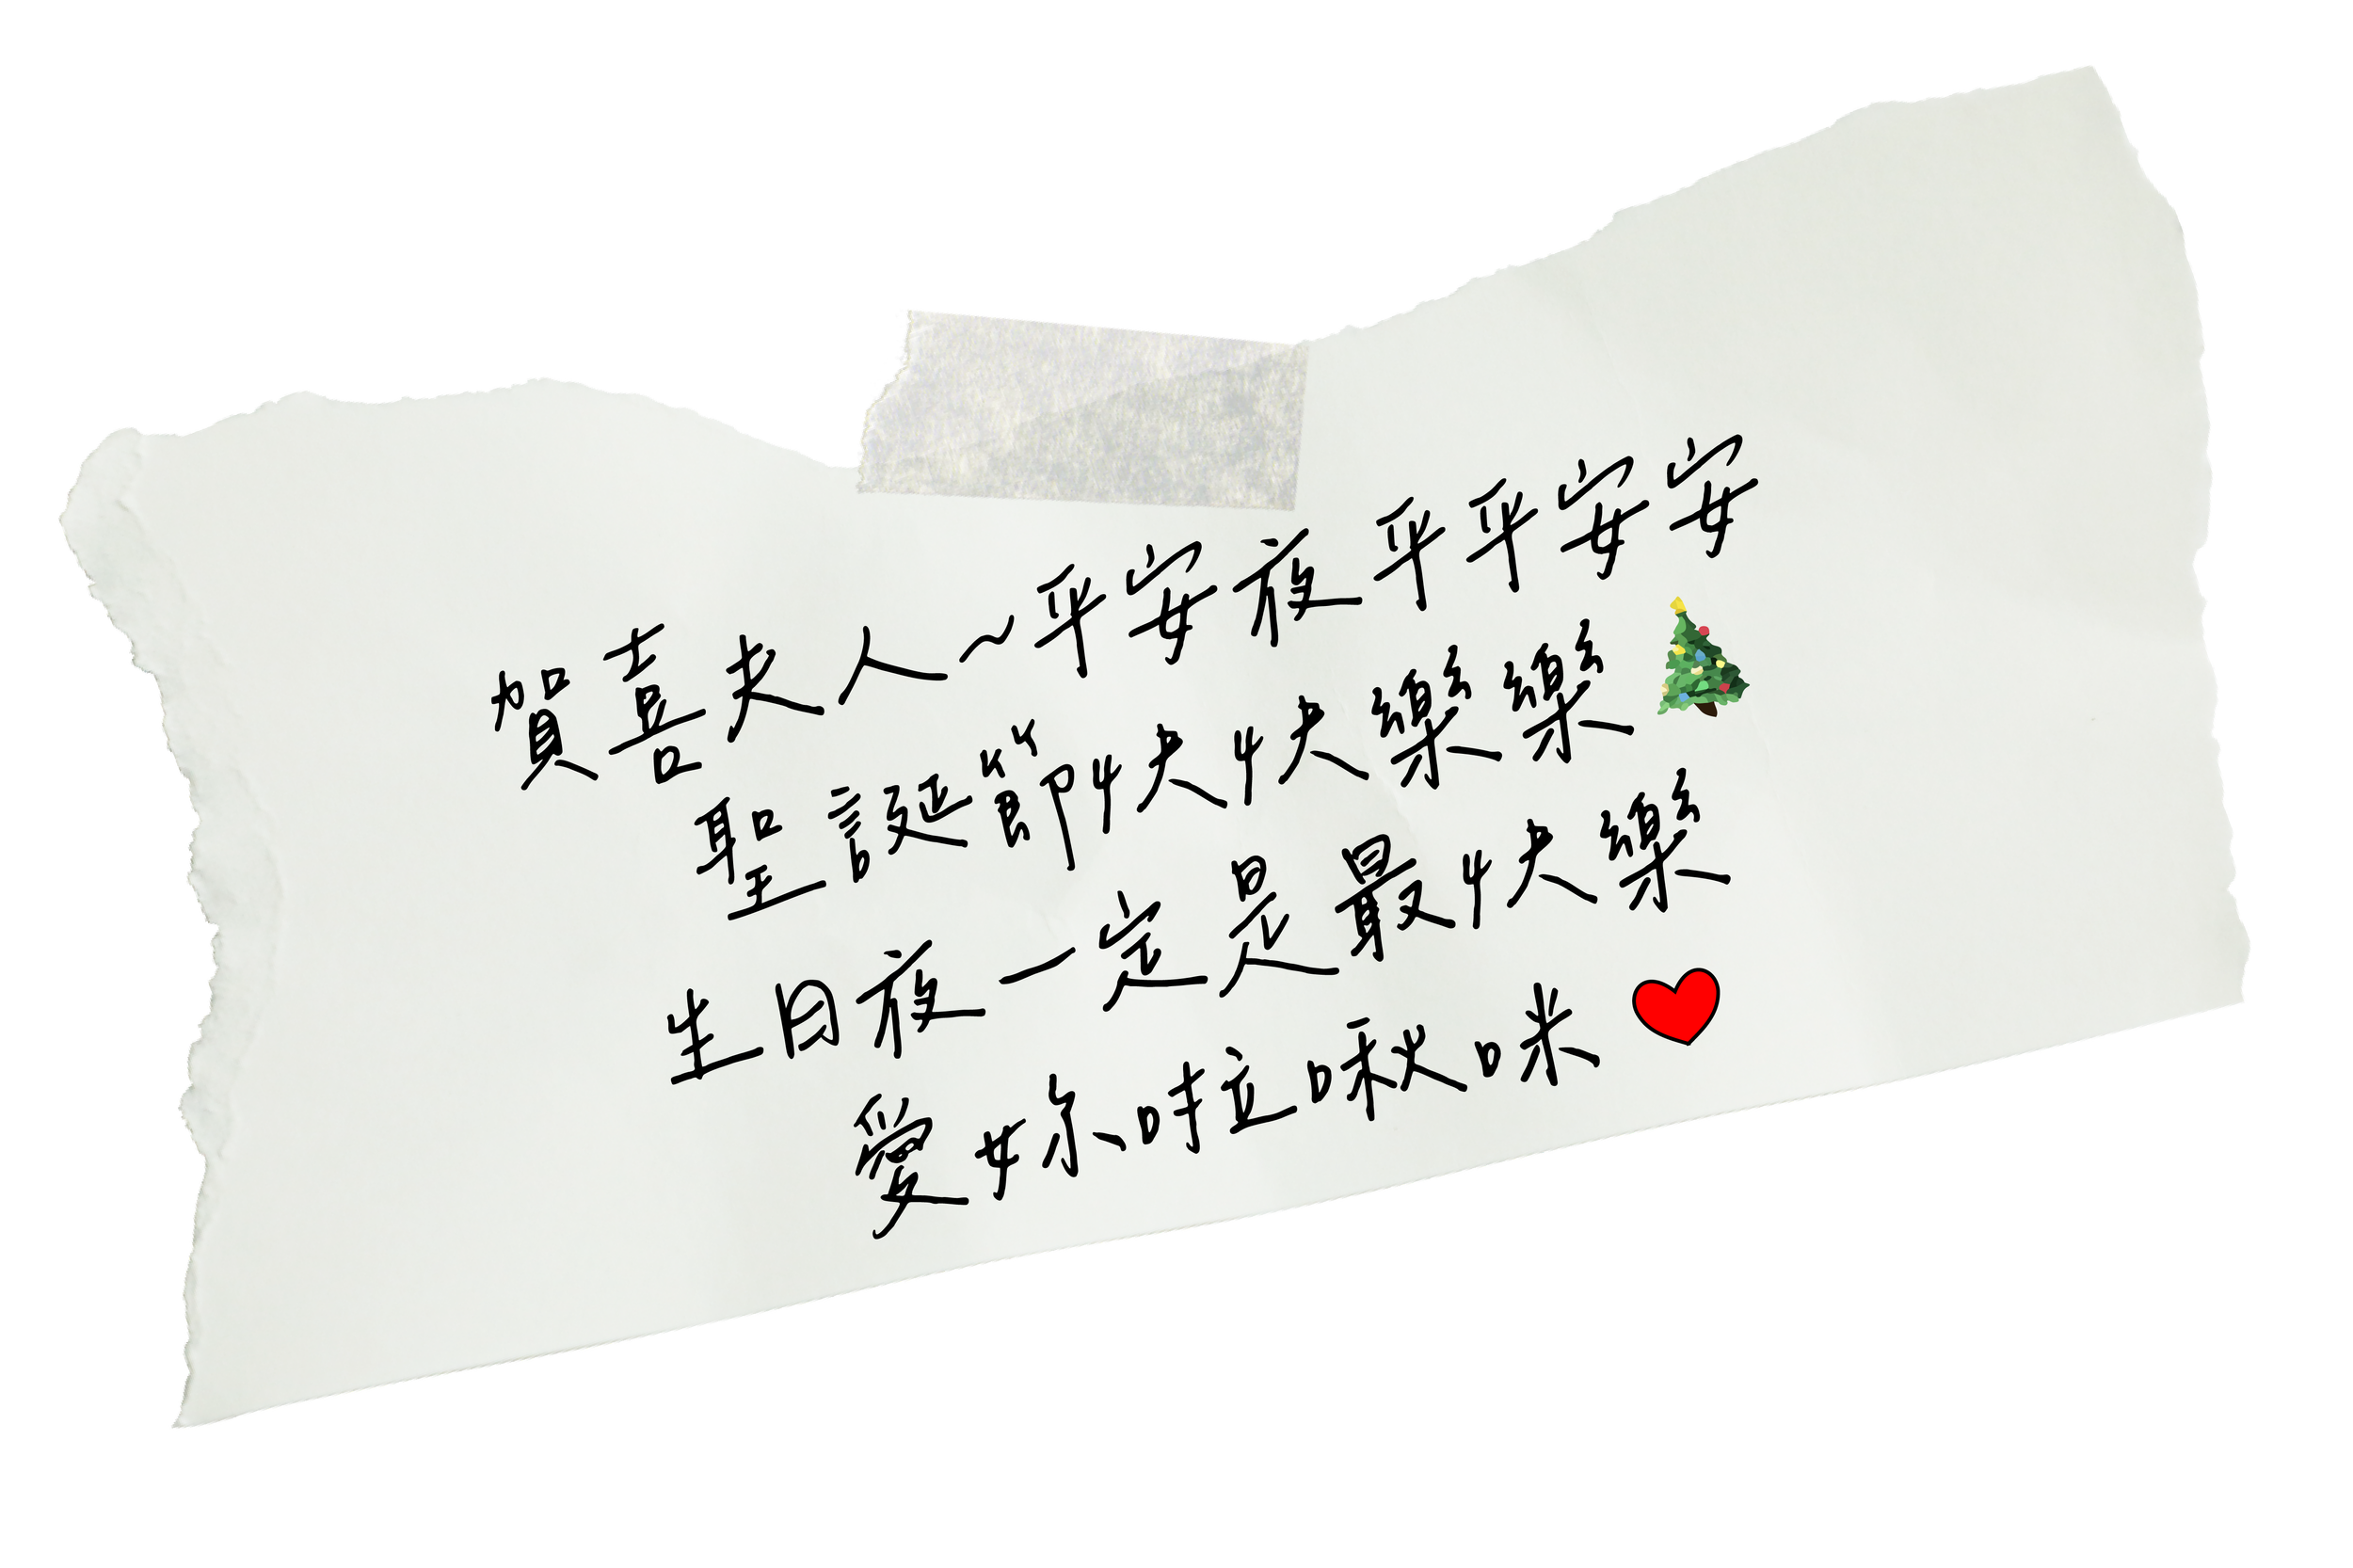 賀喜夫人~平安夜平平安安
聖誕節快快樂樂🎄
生日夜一定是最快樂
愛妳啦啾咪❤️